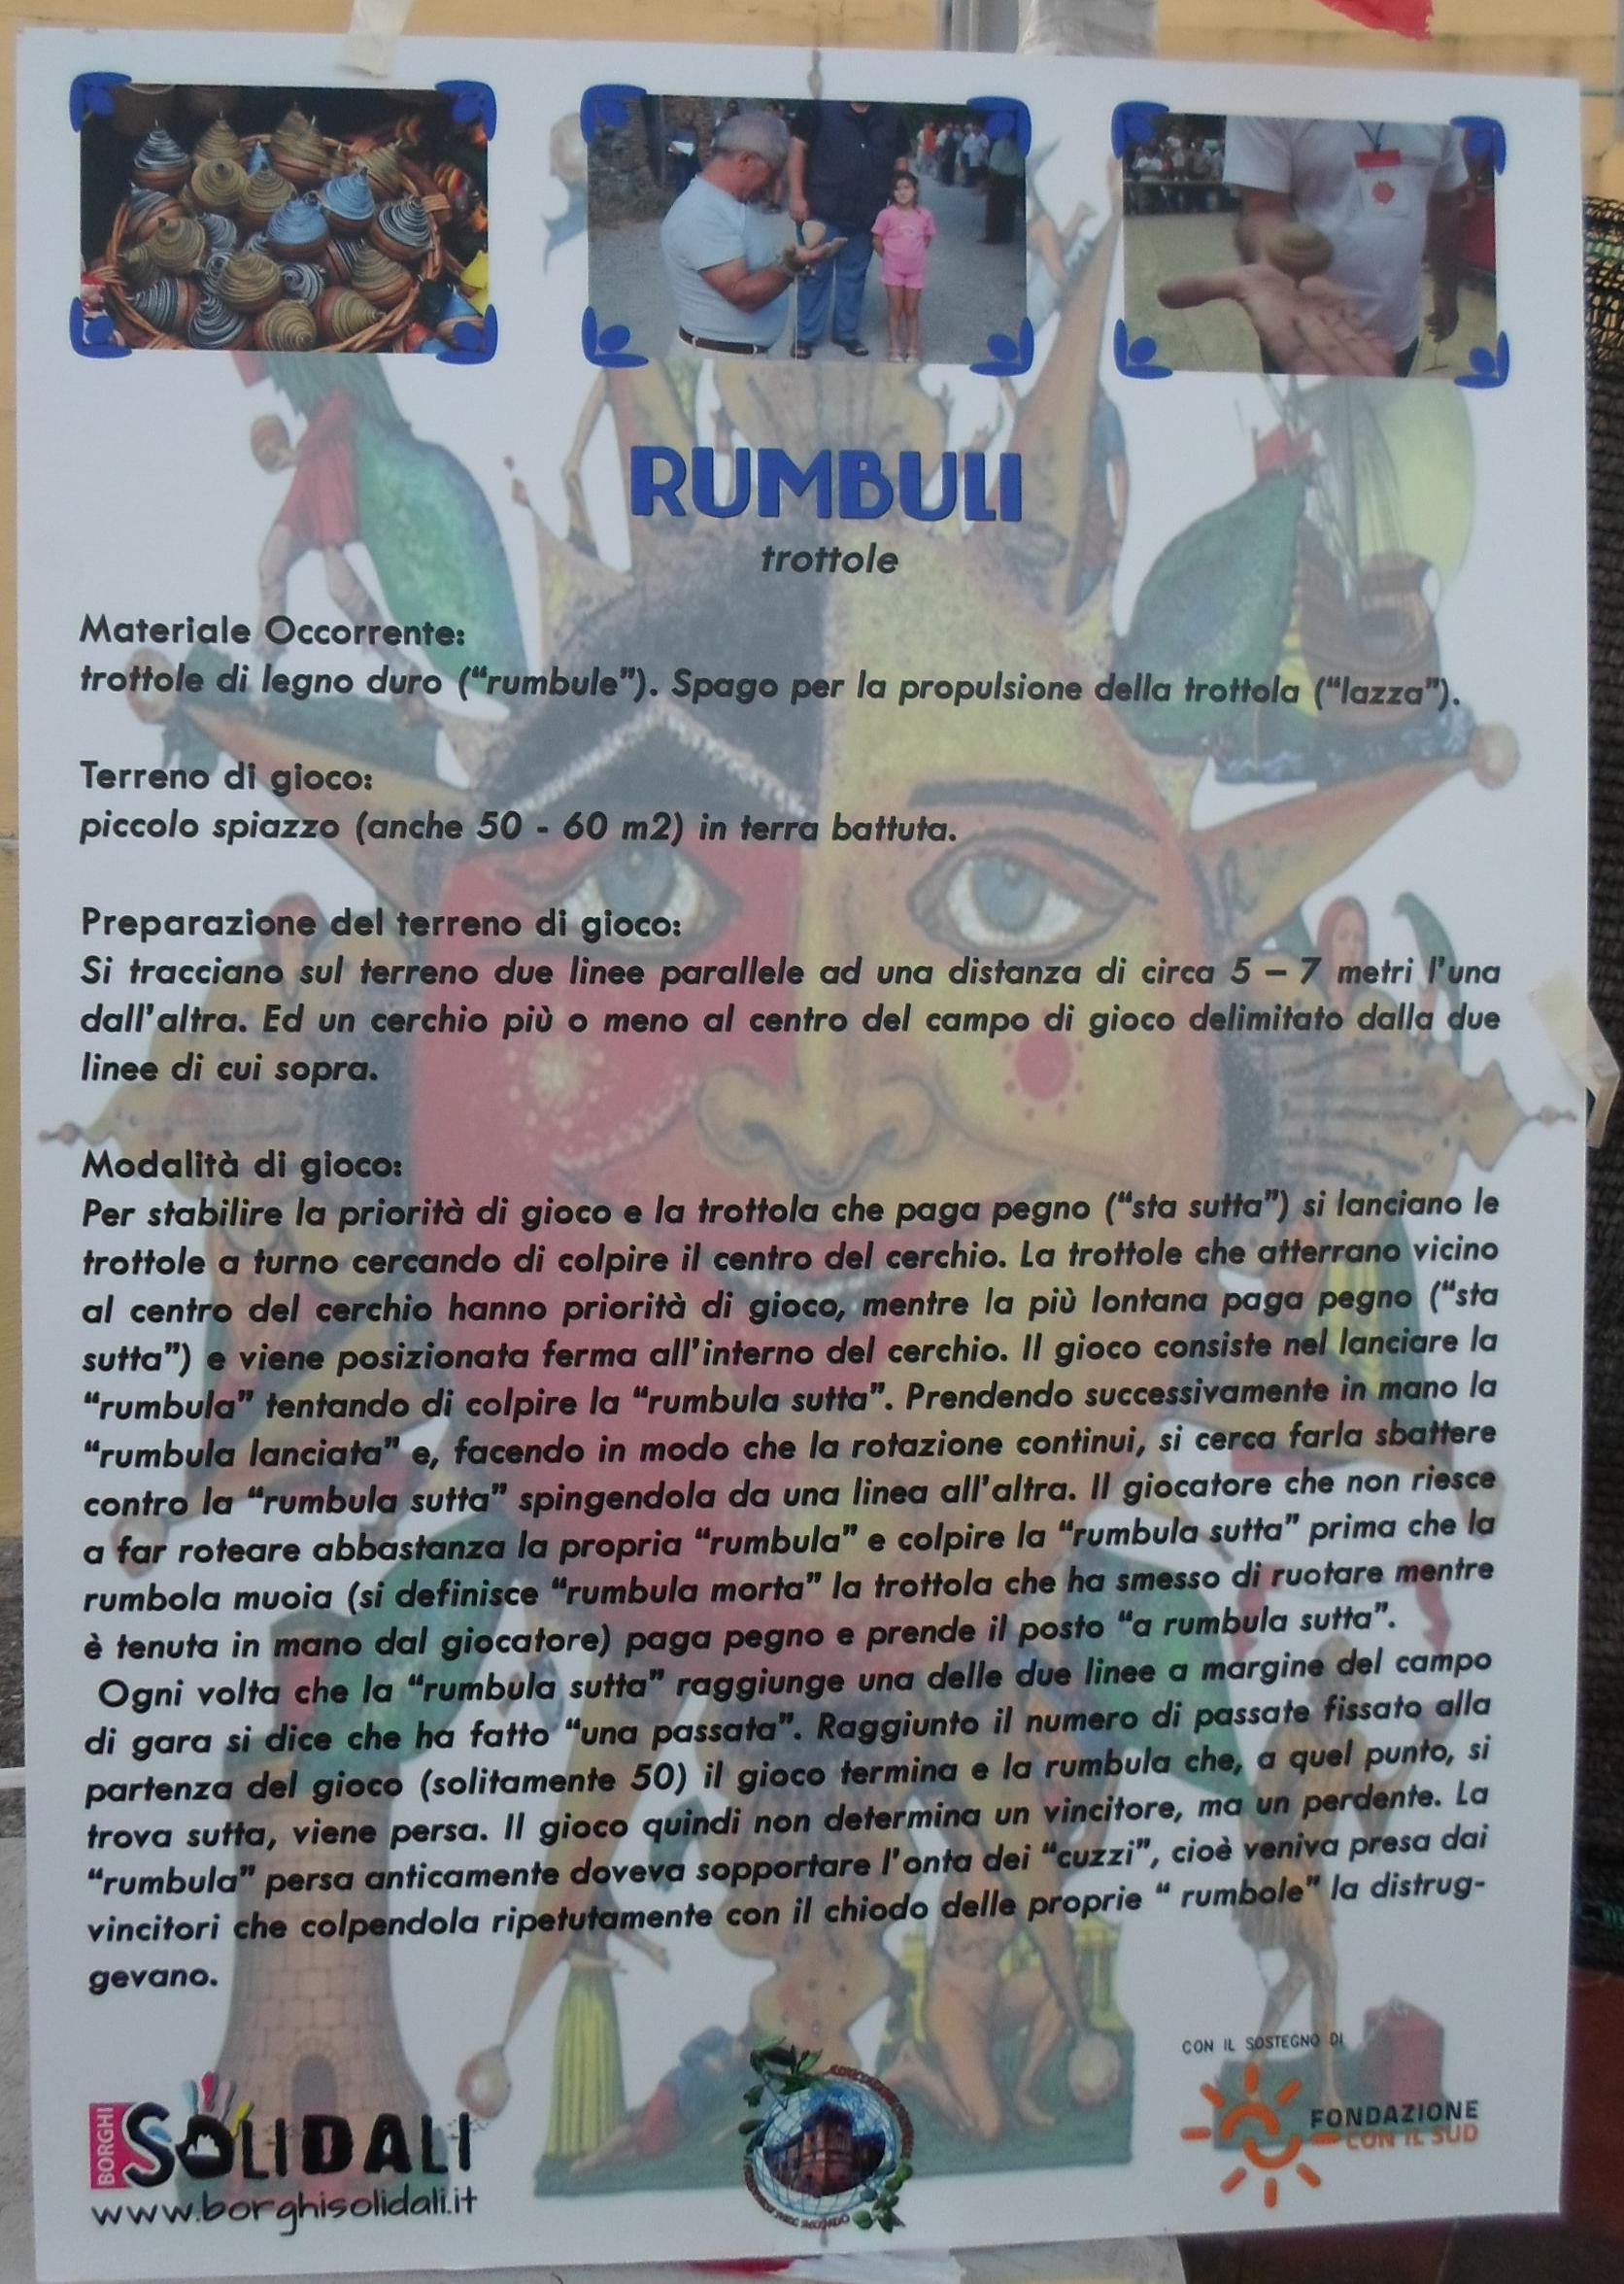 RUMBULI
trottole
Materiale Occorrente:
trottole di legno duro (“rumbule”). Spago per la propulsione della trottola (“lazza”).
Terreno di gioco:
piccolo spiazzo (anche 50 - 60 m2) in terra battuta.
Preparazione del terreno di gioco:
Si tracciano sul terreno due linee parallele ad una distanza di circa 5 – 7 metri l’una
dall’altra. Ed un cerchio più o meno al centro del campo di gioco delimitato dalla due
linee di cui sopra.
Modalità di gioco:
Per stabilire la priorità di gioco e la trottola che paga pegno (“sta sutta”) si lanciano le
trottole a turno cercando di colpire il centro del cerchio. La trottole che atterrano vicino
al centro del cerchio hanno priorità di gioco, mentre la più lontana paga pegno (“sta
sutta”) e viene posizionata ferma all’interno del cerchio. Il gioco consiste nel lanciare la
“rumbula” tentando di colpire la “rumbula sutta”. Prendendo successivamente in mano la
“rumbula lanciata” e, facendo in modo che la rotazione continui, si cerca farla sbattere
contro la “rumbula sutta” spingendola da una linea all’altra. Il giocatore che non riesce
a far roteare abbastanza la propria “rumbula” e colpire la “rumbula sutta” prima che la
rumbola muoia (si definisce “rumbula morta” la trottola che ha smesso di ruotare mentre
è tenuta in mano dal giocatore) paga pegno e prende il posto “a rumbula sutta”.
Ogni volta che la “rumbula sutta” raggiunge una delle due linee a margine del campo
di gara si dice che ha fatto “una passata”. Raggiunto il numero di passate fissato alla
partenza del gioco (solitamente 50) il gioco termina e la rumbula che, a quel punto, si
trova sutta, viene persa. Il gioco quindi non determina un vincitore, ma un perdente. La
“rumbula” persa anticamente doveva sopportare l’onta dei “cuzzi”, cioè veniva presa dai
vincitori che colpendola ripetutamente con il chiodo delle proprie “ rumbole” la distrug-
gevano.
CON IL SOSTEGNO DI
BORGHI
SOLIDALI
www.borghisolidali.it
FONDAZIONE
CON IL SUD